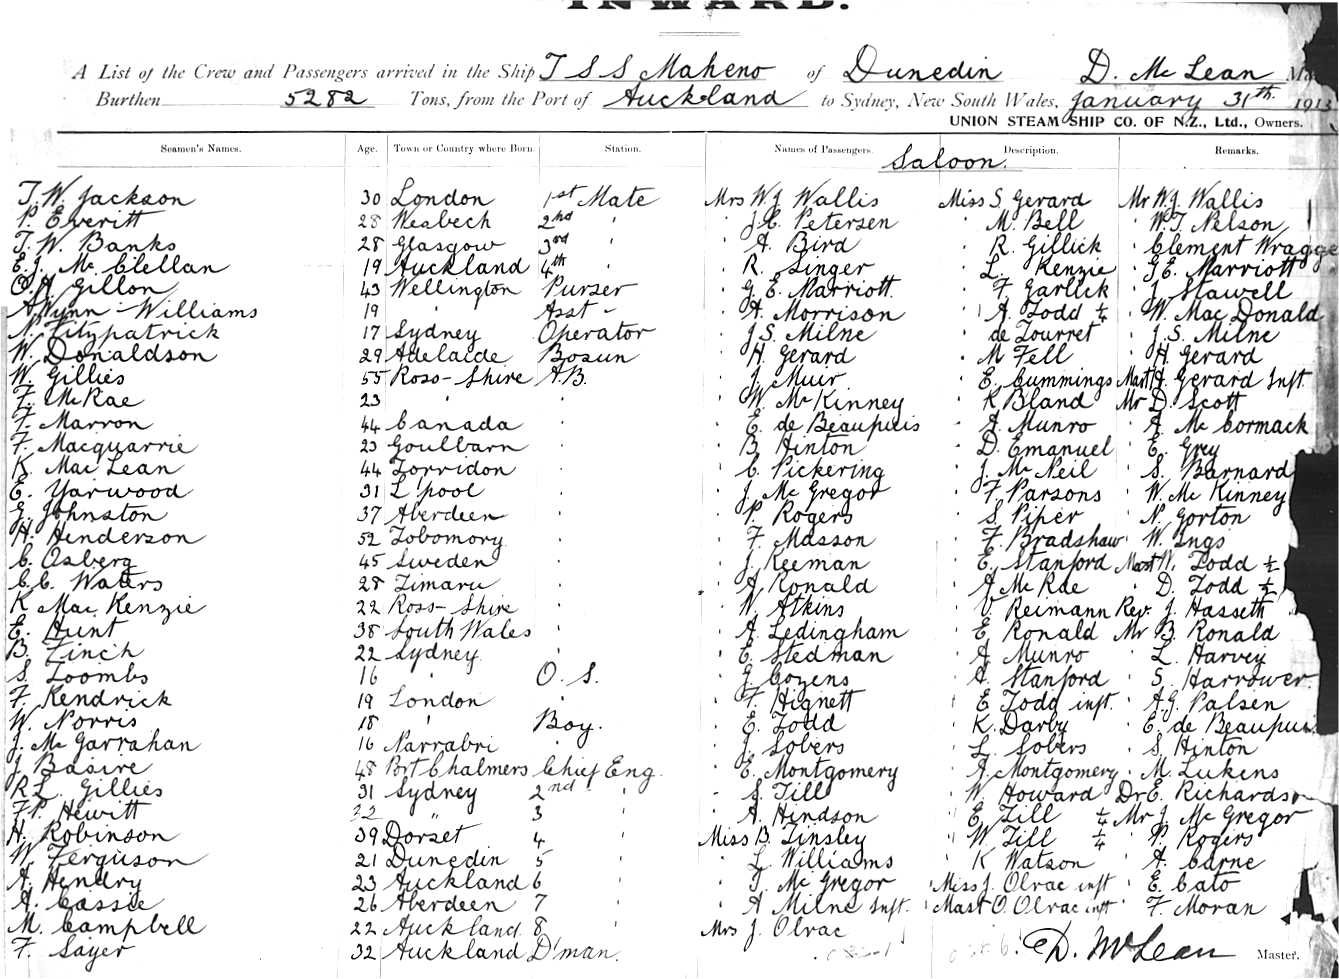 INWARD.
A List of the Crew and Passengers arrived in the Ship T S S Maheno of Dunedin D. McLean
Burthen 5282 Tons, from the Port of Auckland to Sydney, New South Wales, January 31th 1913
UNION STEAM SHIP CO. OF N.Z., Ltd., Owners.
Seamen's Names. Age. Town or Country where Born. Station. Names of Passengers. Description. Remarks.
Saloon.
T. W. Jackson 30 London 1st Mate Mrs W.J. Wallis Miss S. Gerard Mr W.J. Wallis
P. Everitt 28 Wesbech 2nd " " J.C. Petersen " M. Bell " W.T. Nelson
T. W. Banks 28 Glasgow 3rd " " A. Bird " R. Gillick " Clement Wragge
E. J. McClellan 19 Auckland 4th " " R. Singer " L. Kenzie " G.E. Marriott
A. Gillon 43 Wellington Purser " G. E. Marriott " F. Garlick " J. Stawell
A Wynn-Williams 19 " Asst " " A. Morrison " A. Todd ½ " W. MacDonald
N. Fitzpatrick 17 Sydney Operator " J.S. Milne " de Tourret " J.S. Milne
W. Donaldson 29 Adelaide Bosun " H. Gerard " M Fell " H. Gerard
W. Gillies 55 Ross-Shire A.B. " J. Muir " E. Cummings Mast H. Gerard Inft.
F. McRae 23 " " " W. McKinney " K Bland Mr D. Scott
F. Marron 44 Canada " " E. de Beaupuis " A. Munro " A. McCormack
F. Macquarrie 23 Goulburn " " B. Hinton " D. Emanuel " E. Grey
K. MacLean 44 Torridon " " C. Pickering " J. McNeil " S. Barnard
E. Yarwood 31 L'pool " " J. McGregor " F. Parsons " W. McKinney
G. Johnston 37 Aberdeen " " P. Rogers " S. Piper " N. Gorton
H. Henderson 52 Tobomory " " F. Masson " F. Bradshaw " W. Ings
C. Osberg 45 Sweden " " J. Keeman " E. Stanford Mast W. Todd ½
C.C. Waters 28 Timaru " " A. Ronald " A. McRae " D. Todd ½
K MacKenzie 22 Ross-Shire " " W. Atkins " V. Reimann Rev. J. Hasseth
E. Hunt 38 South Wales " " A. Ledingham " E. Ronald Mr B. Ronald
B. Finch 22 Sydney " " E. Stedman " A. Munro " L. Harvey
S. Toombs 16 " O. S. " G. Cozens " A. Stanford " S. Harrower
F. Kendrick 19 London " " F. Hignett " E. Todd inft. " A.G. Palsen
W. Norris 18 " Boy. " E. Todd " K. Darby " E. de Beaupuis
J. McGarrahan 16 Narrabri " " J. Sobers " L. Sobers " S. Hinton
J. Basire 48 Port Chalmers Chief Eng. " E. Montgomery " A. Montgomery " M. Lukins
R.L. Gillies 31 Sydney 2nd " " S. Till " W. Howard Dr E. Richardson
F.P. Hewitt 32 " 3 " " A. Hindson " E. Till ¼ Mr J. McGregor
H. Robinson 39 Dorset 4 " Miss B. Tinsley " W. Till ¼ " P. Rogers
W. Ferguson 21 Dunedin 5 " " L. Williams " K. Watson " A. Carne
A. Hendry 23 Auckland 6 " " J. McGregor " Miss J. Olrac inft " E. Cato
A. Cassie 26 Aberdeen 7 " " A Milne Inft. " Mast O. Olrac inft " F. Moran
M. Campbell 22 Auckland 8 " Mrs J. Olrac
F. Sayer 32 Auckland D'man. D. McLean Master.